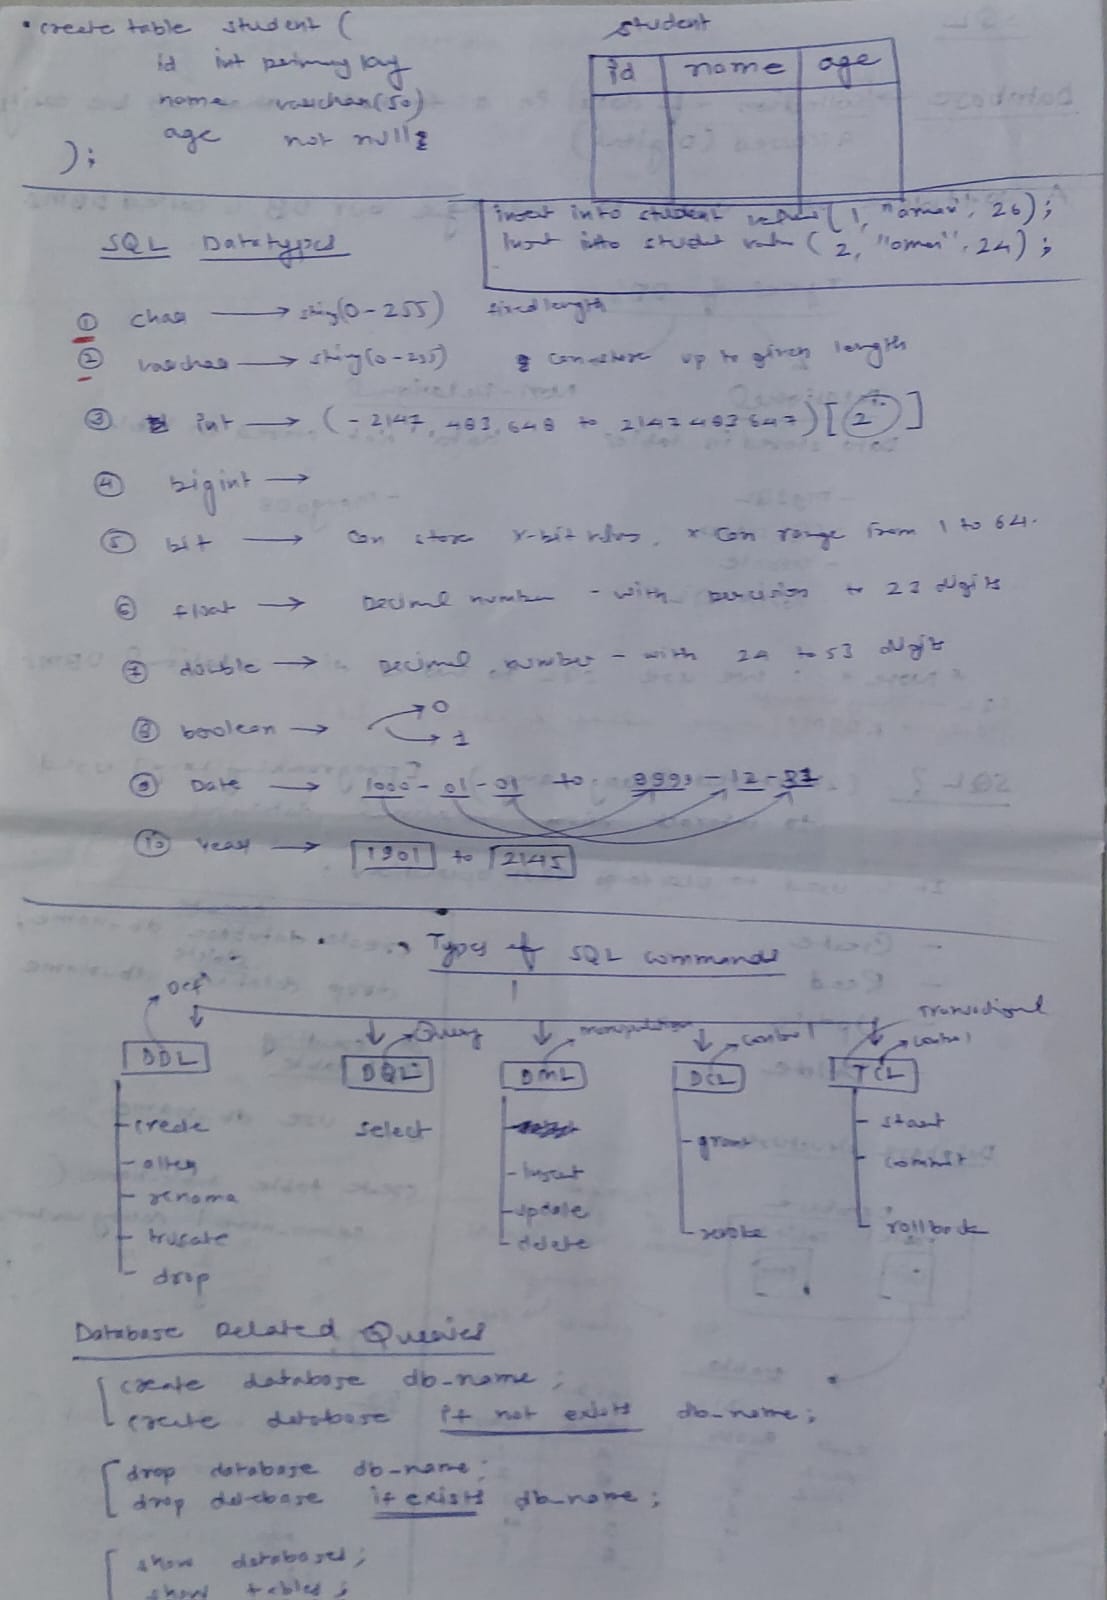 • create table student (
id int primary key
name varchar(50)
age not null
);
student
id name age
insert into student values (1, "omar", 26);
insert into student values (2, "omer", 24);
SQL Datatypes
① char → string(0-255) fixed length
② varchar → string(0-255) can store up to given length
③ int → (-2147,483,648 to 2147483647)
④ bigint →
⑤ bit → can store x-bit values, x can range from 1 to 64.
⑥ float → Decimal number - with percision to 23 digits
⑦ double → Decimal number - with 24 to 53 digits
⑧ boolean → 0
1
⑨ Date → 1000-01-01 to 9999-12-31
⑩ Year → 1901 to 2145
Types of SQL commands
Def
Query
manipulation
control
Transactional
control
DDL DQL DML DCL TCL
- create
- alter
- rename
- trucate
- drop
select
- insert
- update
- delete
- grant
- revoke
- start
- commit
- rollback
Database Related Queries
create database db_name;
create database if not exists db_name;
drop database db_name;
drop database if exists db_name;
show databases;
show tables;